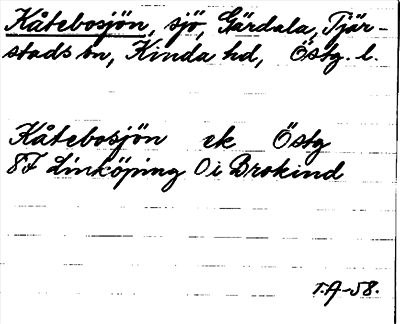 Kåtebosjön, sjö, Gärdala, Tjär-
stads sn, Kinda hd, Östg. l.
Kåtebosjön ek Östg
8F Linköping 0i Brokind
T.A-58.